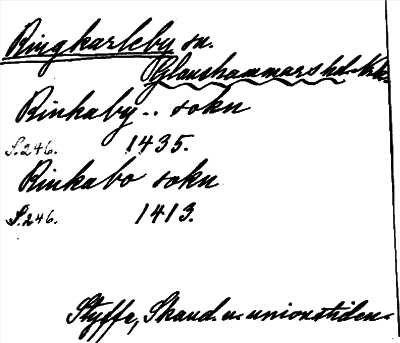 Ringkarleby sn.
Glanshammars hd.
Rinkaby.. sokn
S. 246. 1435.
Rinkabo sokn
S. 246. 1413.
Styffe, Skand. u. unionstiden.